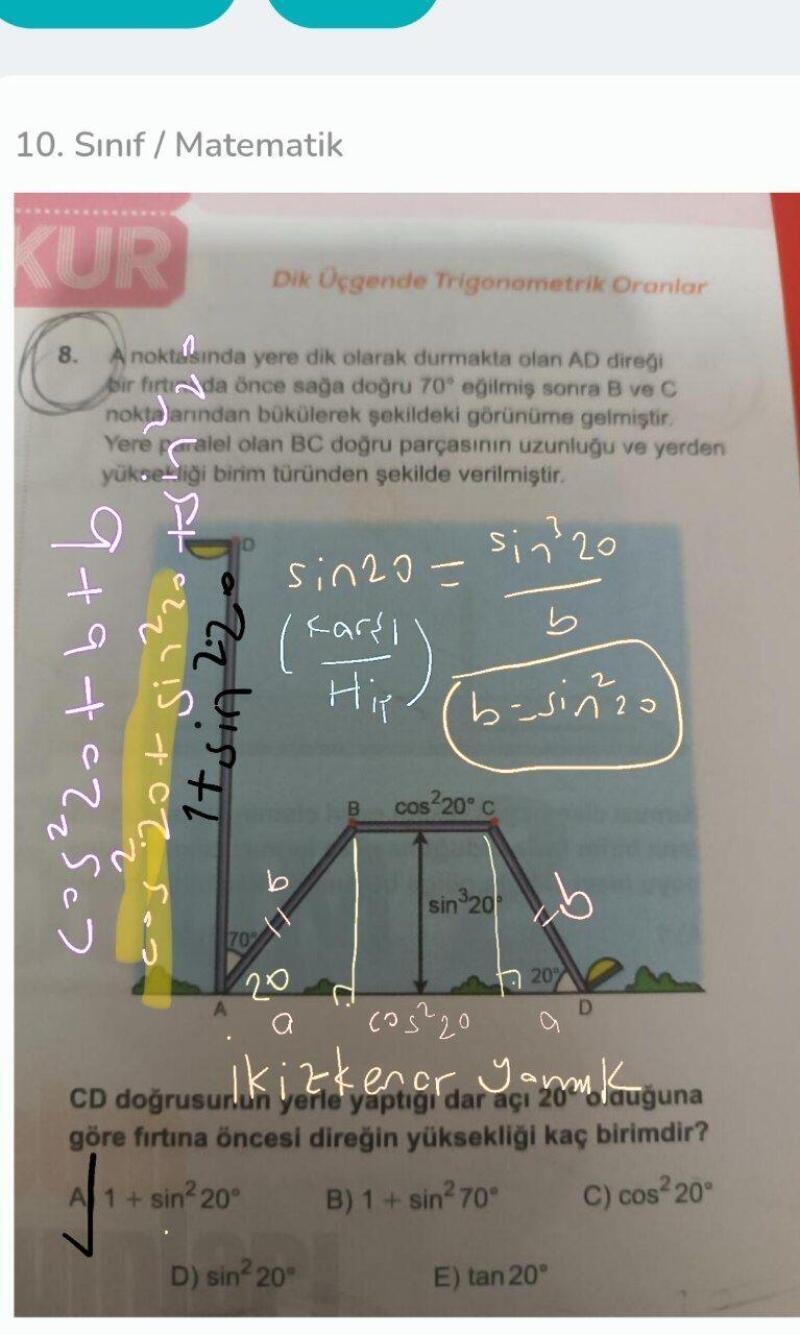 10. Sınıf / Matematik
KUR
Dik Üçgende Trigonometrik Oranlar
8. A noktasında yere dik olarak durmakta olan AD direği
bir fırtınada önce sağa doğru 70° eğilmiş sonra B ve C
noktalarından bükülerek şekildeki görünüme gelmiştir.
Yere paralel olan BC doğru parçasının uzunluğu ve yerden
yüksekliği birim türünden şekilde verilmiştir.
cos²20+b+b
cos²20+sin²20+sin²20
1+sin²20
D
sin20 = sin³20 / b
(Karşı / Hip)
b=sin²20
B cos²20° C
b
sin³20°
b
70°
20
20°
A
D
a
cos²20
a
ikizkenar yamuk
CD doğrusunun yerle yaptığı dar açı 20° olduğuna
göre fırtına öncesi direğin yüksekliği kaç birimdir?
A) 1 + sin²20°
B) 1 + sin²70°
C) cos²20°
D) sin²20°
E) tan20°